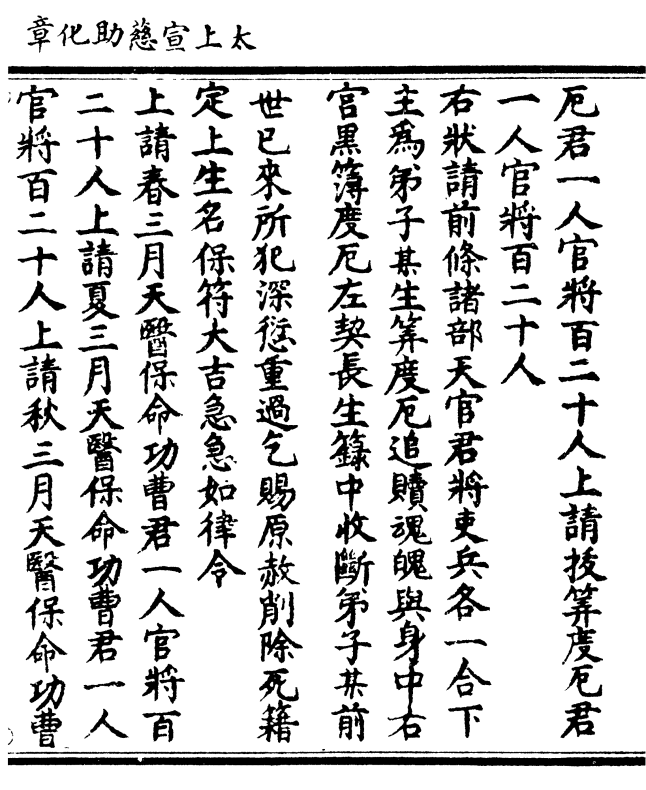 太上宣慈助化章
厄君一人官將百二十人上請扶筭度厄君
一人官將百二十人
右狀請前條諸部天官君將吏兵各一合下
主爲弟子某生筭度厄追贖魂魄與身中右
宮黑簿度厄左契長生籙中收斷弟子某前
世已來所犯深愆重過乞賜原赦削除死籍
定上生名保符大吉急急如律令
上請春三月天醫保命功曹君一人官將百
二十人上請夏三月天醫保命功曹君一人
官將百二十人上請秋三月天醫保命功曹